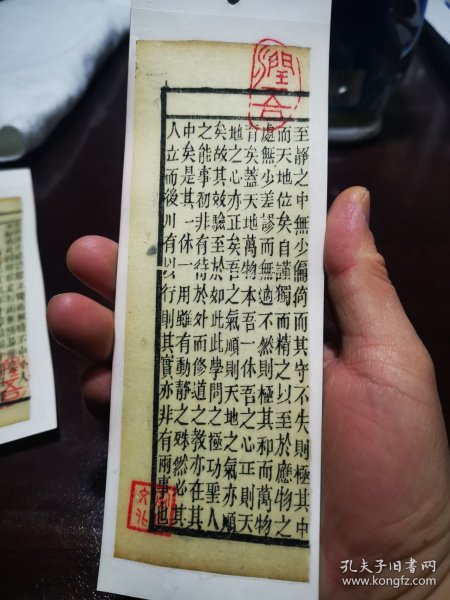 至靜之中無少偏倚而其守不失則極其中
而天地位矣自謹獨而精之以至於應物之
處無少差謬而無適不然則極其和而萬物
育矣蓋天地萬物本吾一体吾之心正則天
地之心亦正矣吾之氣順則天地之氣亦順
矣故其效驗至於如此此學問之極功聖人
之能事初非有待於外而修道之教亦在其
中矣是其一体一用雖有動靜之殊然必其
立而後用有以行則其實亦非有兩事也
孔夫子旧书网
www.kongfz.com